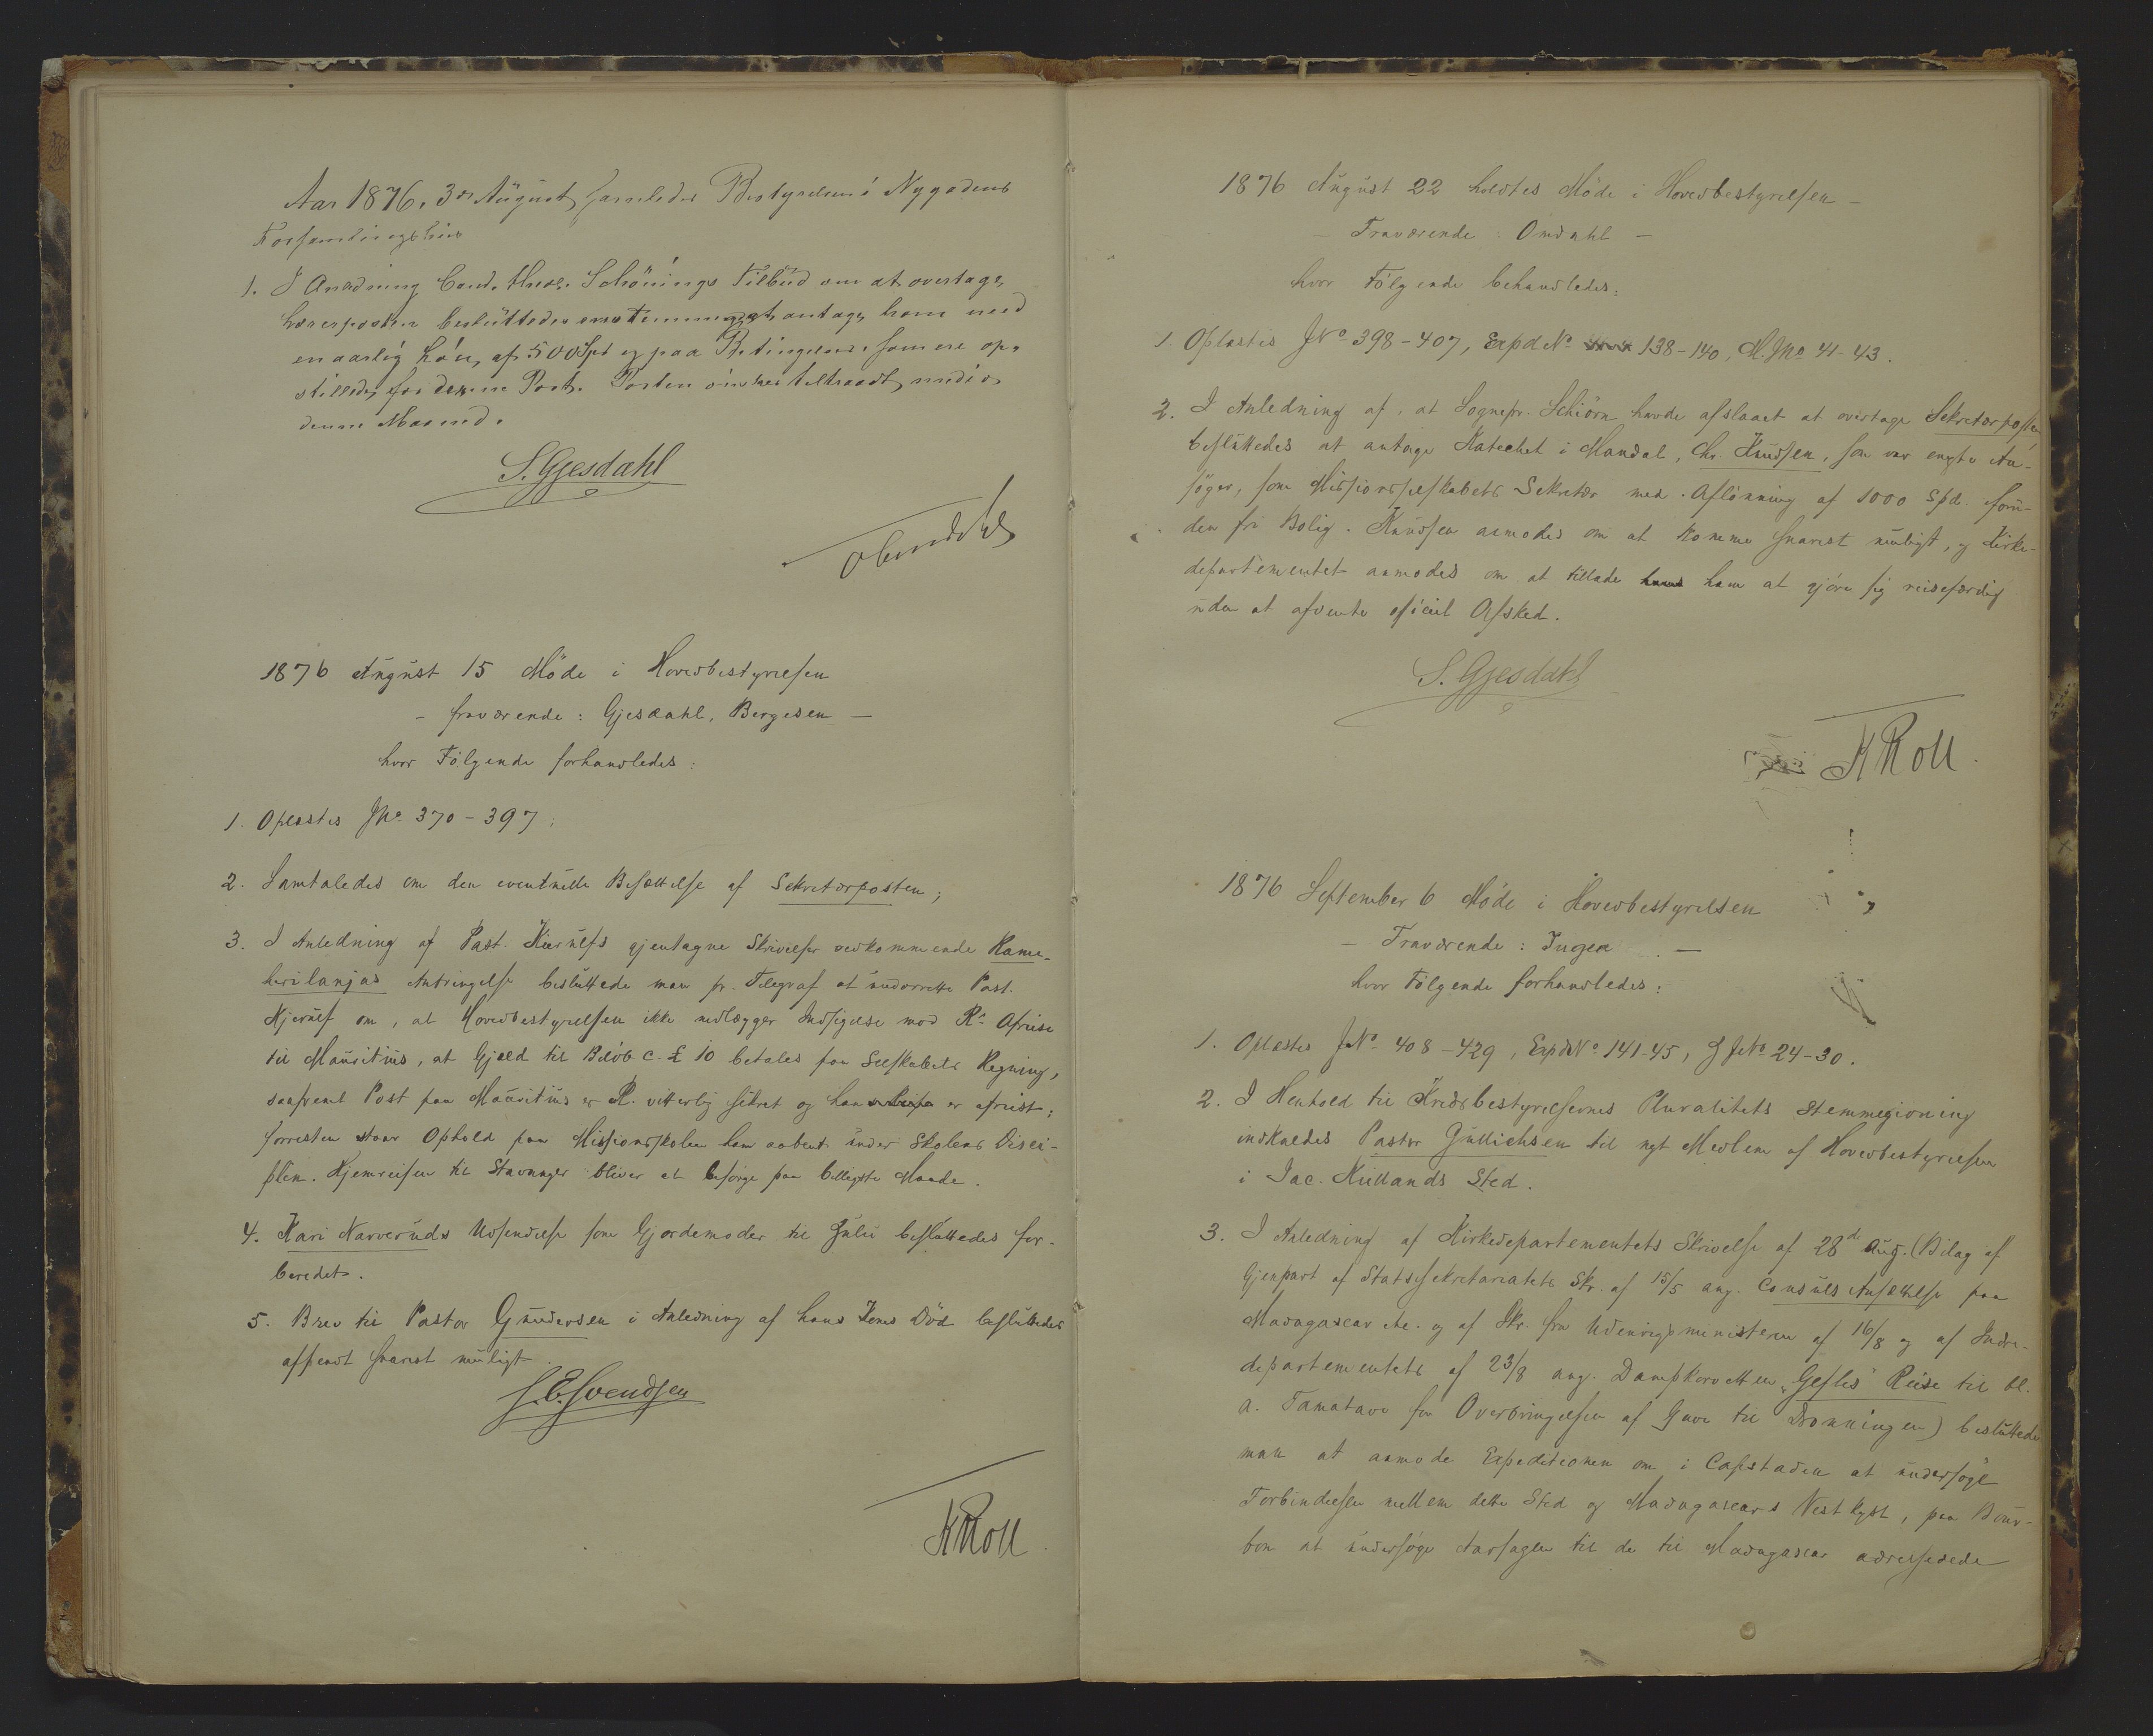 Aar 1876. 3die August samledes Bestyrelsen i Nygadens
Forsamlingshus
1. I Anledning Cand. theol. Schönings Tilbud om at overtage
Lærerposten besluttedes enstemmigt at antage ham med
en aarlig Løn af 500 Spd og paa Betingelser som ere op-
stillede for denne Post. Posten önskes tiltraadt medio
denne Maaned.
S. Gjesdahl
Omdahl
1876 August 15 Möde i Hovedbestyrelsen
- fraværende: Gjesdahl, Bergesen -
hvor Fölgende forhandledes:
1. Oplæstes JNo. 370-397;
2. Samtaledes om den eventuelle Besættelse af Sekretærposten;
3. I Anledning af Past. Kierulfs gjentagne Skrivelser vedkommende Rame-
herilanjas Antringelse besluttede man pr. Telegraf at underrette Past.
Kjerulf om, at Hovedbestyrelsen ikke nedlægger Indsigelse mod Rs. Afreise
til Mauritius, at Gjæld til Belöb c. £ 10 betales for Selskabets Regning,
saafremt Post paa Mauritius er R. vitterlig sikret og han er afreist;
forresten staar Ophold paa Missionsskolen ham aabent under Skolens Disci-
plin. Hjemreisen til Stavanger bliver at besörge paa billigste Maade.
4. Kari Narveruds Udsendelse som Gjordemoder til Zulu besluttedes for-
beredet.
5. Brev til Pastor Gundersen i Anledning af hans Kones Död besluttedes
affendt snarest muligt.
S. E. Svendsen
KRoll
1876 August 22 holdtes Möde i Hovedbestyrelsen -
- Fraværende: Omdahl -
hvor Fölgende behandledes:
1. Oplæstes JNo 398-407, ExpdNo 138-140, M.JNo 41-43.
2. I Anledning af, at Sognepr. Schiörn havde afslaaet at overtage Sekretærposten
besluttedes at antage Katechet i Mandal, Chr. Knudsen, som var eneste An-
söger, som Missionsselskabets Sekretær med Aflönning af 1000 Spd. foru-
den fri Bolig. Knudsen anmodes om at komme snarest muligt, og Kirke-
departementet anmodes om at tillade ham at gjöre sig reisefærdig
uden at afvente officiel Afsked.
S. Gjesdahl
KRoll.
1876 September 6 Möde i Hovedbestyrelsen
- Fraværende: Ingen -
hvor Fölgende forhandledes:
1. Oplæstes JNo. 408-429, ExpdNo 141-45, G JNo. 24-30.
2. I Henhold til Kredsbestyrelsernes Pluralitets Stemmegivning
indkaldes Pastor Gullichsen til nyt Medlem af Hovedbestyrelsen
i Jac. Kiellands Sted.
3. I Anledning af Kirkedepartementets Skrivelse af 28d Aug. (Bilag af
Gjenpart af Statssekretariatets Skr. af 15/5 ang. Consuls Ansættelse paa
Madagascar etc. og af Skr. fra Udenrigsministeren af 16/8 og af Indre-
departementets af 23/8 ang. Dampkorvetten "Gefles" Reise til bl.
a. Tamatave for Overbringelsen af Gave til Dronningen) besluttede
man at anmode Expeditionen om i Capstaden at undersöge
Forbindelsen mellem dette Sted og Madagascars Vestkyst, paa Bour-
bon at undersöge Aarsagen til de til Madagascar adresserede